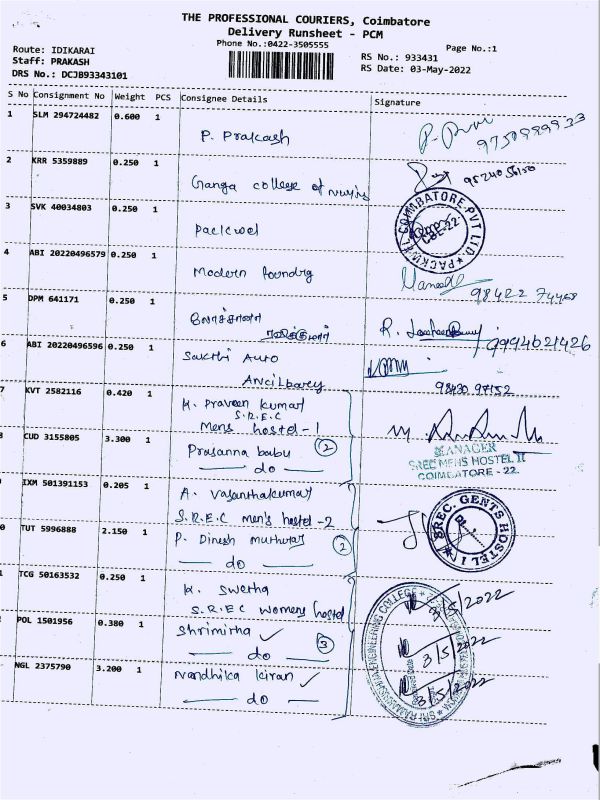 THE PROFESSIONAL COURIERS, Coimbatore
Delivery Runsheet - PCM
Phone No.:0422-3505555
Page No.:1
Route: IDIKARAI
Staff: PRAKASH
DRS No.: DCJB93343101
RS No.: 933431
RS Date: 03-May-2022
S No Consignment No Weight PCS Consignee Details Signature
1 SLM 294724482 0.600 1
P. Prakash
9750999933
2 KRR 5359889 0.250 1
Ganga college of
3 SVK 40034803 0.250 1
Packwel
PACKWEL COIMBATORE PVT LTD.
4 ABI 20220496579 0.250 1
Modern foundry
98422
5 DPM 641171 0.250 1
R.
9994621426
6 ABI 20220496596 0.250 1
Sakthi Auto
Ancilbarey
7 KVT 2582116 0.420 1
K. Praveen Kumar
S.R.E.C
Mens hostel-1
CUD 3155805 3.300 1
Prasanna babu 2
do
MANAGER
SREC MENS HOSTEL II
COIMBATORE - 22.
IXM 501391153 0.205 1
A. Vasanthakumar
S.R.E.C men's hostel-2
SREC. GENTS HOSTEL I
0 TUT 5996888 2.150 1
P. Dinesh muthuraj 2
do
1 TCG 50163532 0.250 1
K. Swetha
S.R.EC womens hostel
3/5/2022
POL 1501956 0.380 1
Shrimirha
do 3
3/5/2022
NGL 2375790 3.200 1
Nandhika kiran
do
3/5/2022